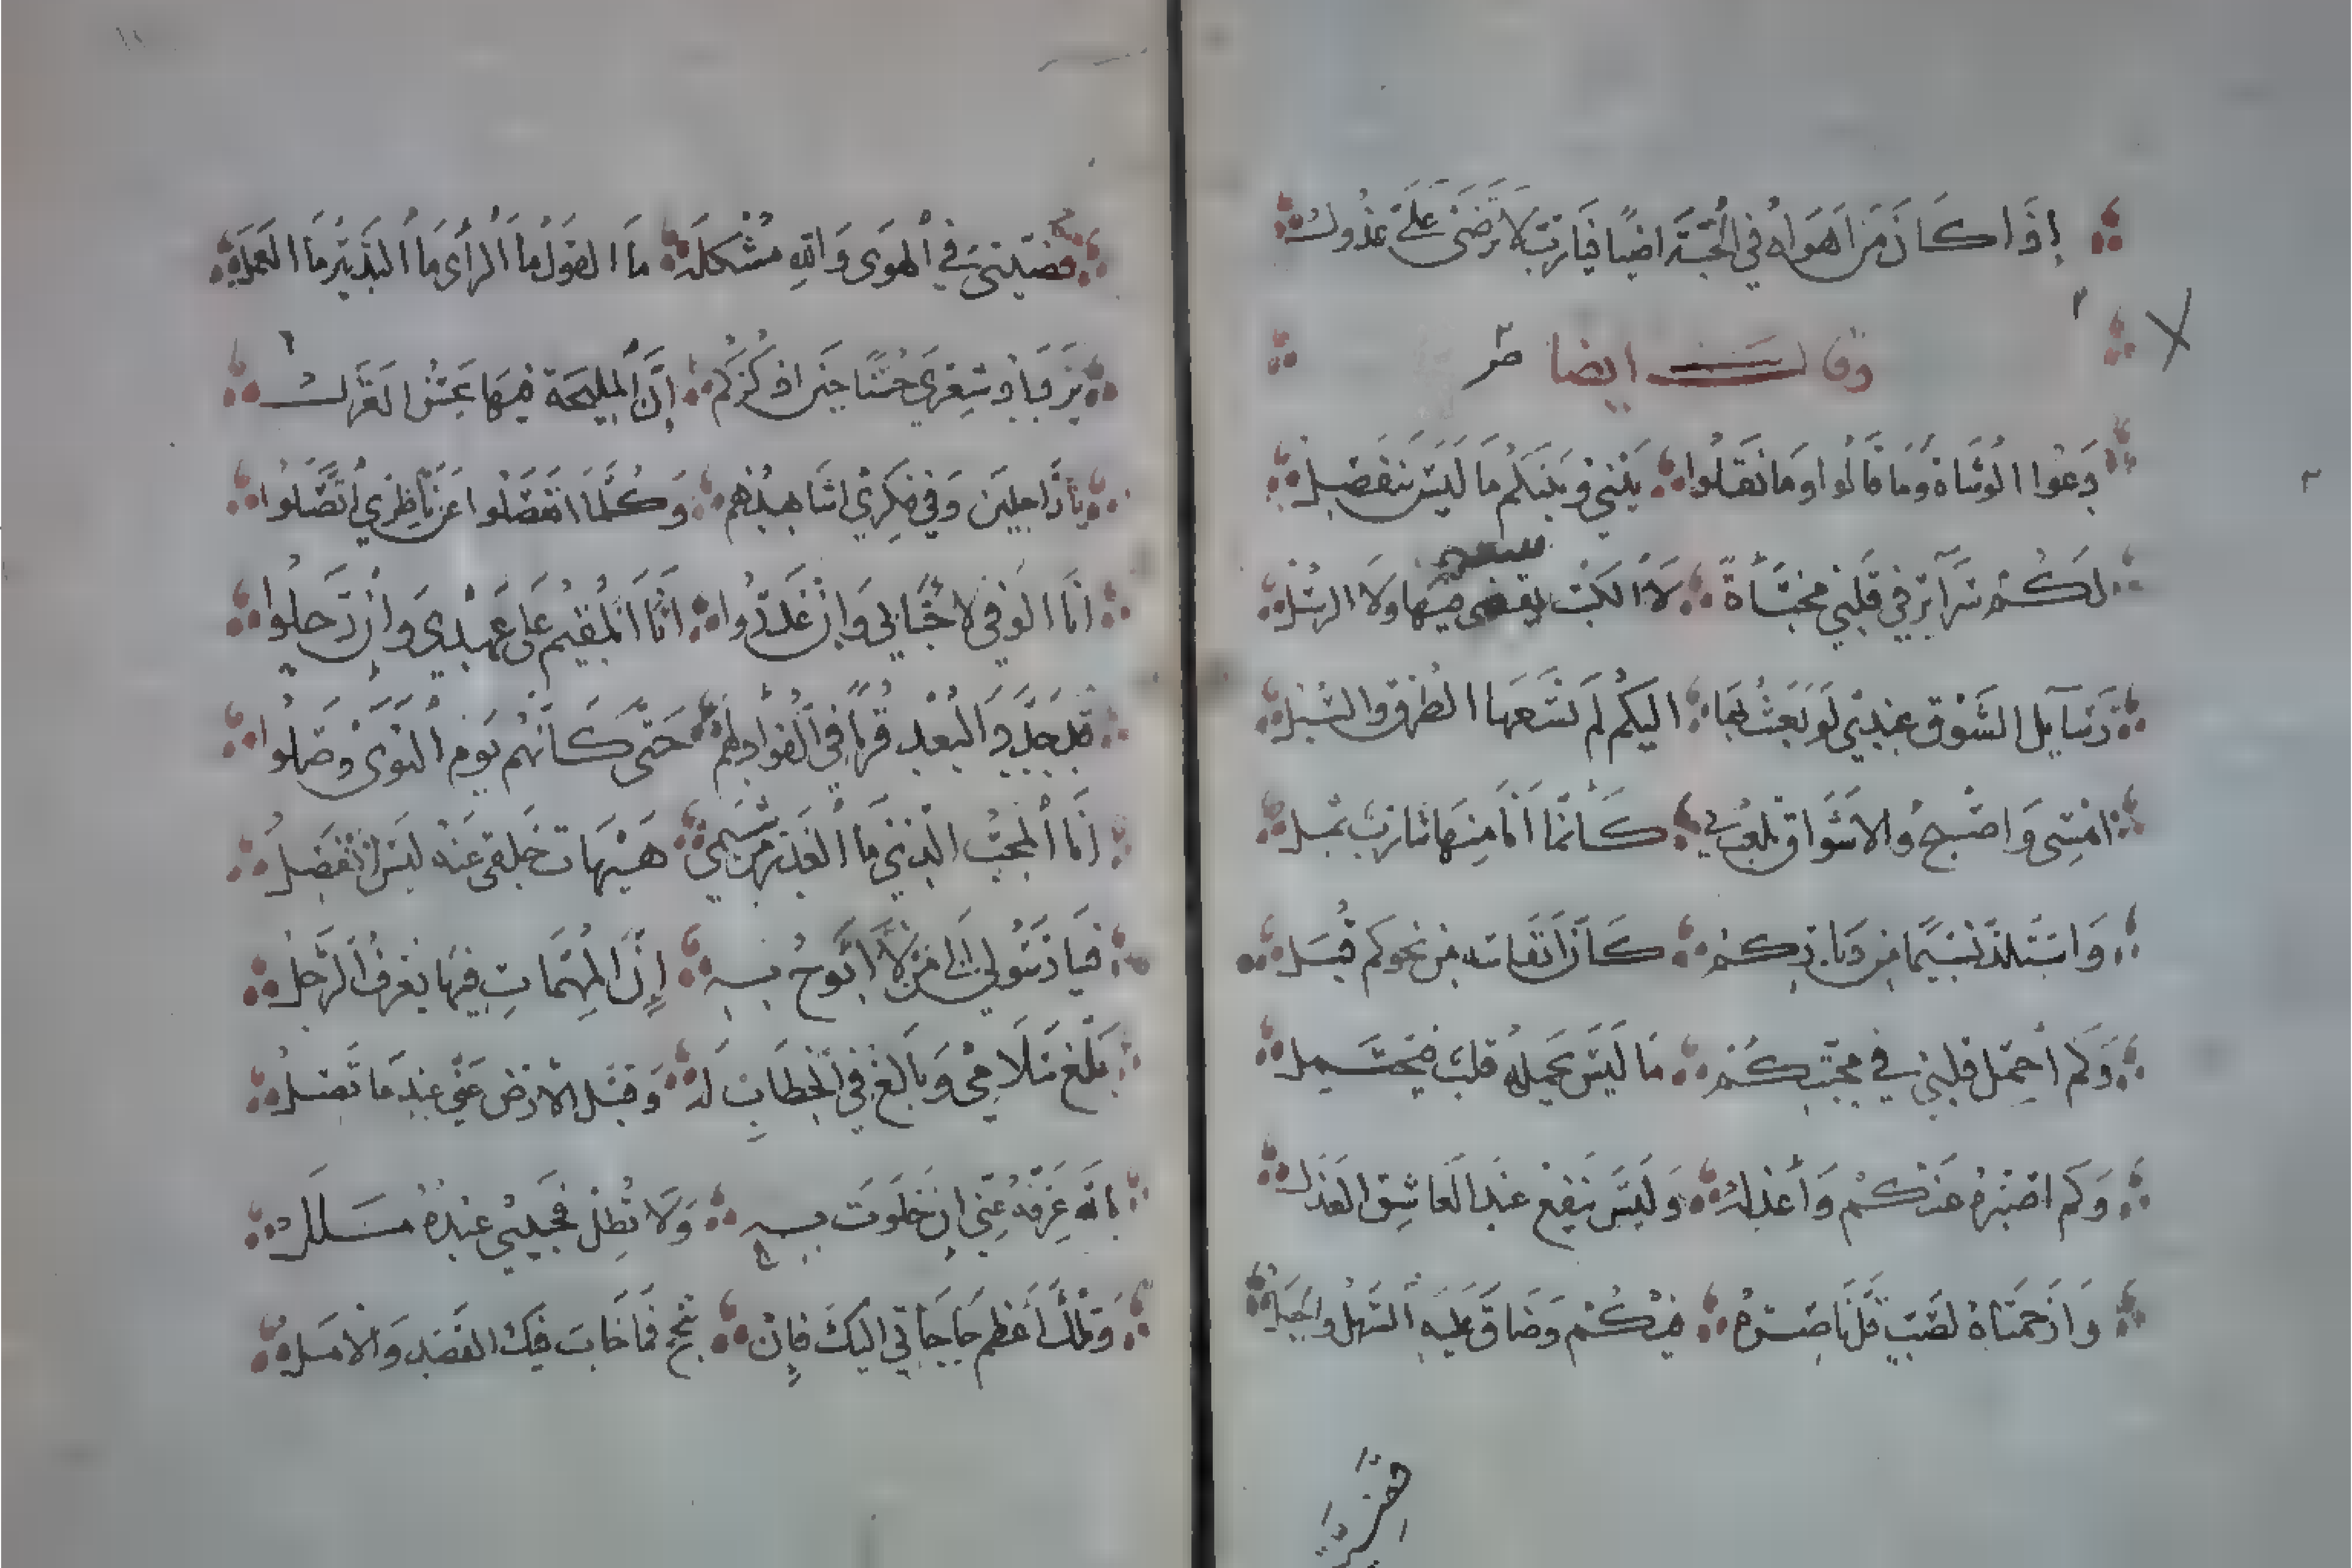 إذا كان من اهواه في المحبة راضيا فيارب لا ترضى علي عذول
وقال ايضا
دعوا الوشاة وما قالوا وما نقلوا بيني وبينكم ما ليس ينفصل
لكم سرآئر في قلبي مخبأة لا الكتب فيها ولا الرسل
رسآيل الشوق عندي لو بعثت بها اليكم لم تسعها الطرق والسبل
امسي واصبح والاشواق تلعب بي كأنما انا منها شارب ثمل
واستلذ نسيما من دياركم كأن انفاسه من نحوكم قبل
وكم احمل قلبي في محبتكم ما ليس يحمله قلب فيحتمل
وكم اصبره عنكم وأعذله وليس ينفع عند العاشق العذل
وارحمتاه لصب قل ناصره فيكم وضاق عليه السهل والجبل
قضيتي في الهوى والله مشكلة ما القول ما الرأى ما التدبير ما العمل
يزداد شعري حسنا حين اذكركم إن المليحة فيها يحسن الغزل
يا راحلين وفي فكري اشاهدهم وكلما انفصلوا عن ناظري اتصلوا
انا الوفي لاحبابي وان غدروا انا المقيم على عهدي وإن رحلوا
قد جدد البعد قربا في الفؤاد لهم حتى كأنهم يوم النوى وصلوا
انا المحب الذي ما الغدر من شيمي هيهات خلقي عنه ليس انفصل
فيا رسولي الى من لا أبوح به إن المهمات فيها يعرف الرجل
بلغ سلامي وبالغ في الخطاب له وقبل الارض عني عندما تصل
بالله عرفه عني ان خلوت به ولا تطل فحبيبي عنده ملل
وتلك أعظم حاجاتي اليك فإن تنجح فما خاب فيك القصد والامل